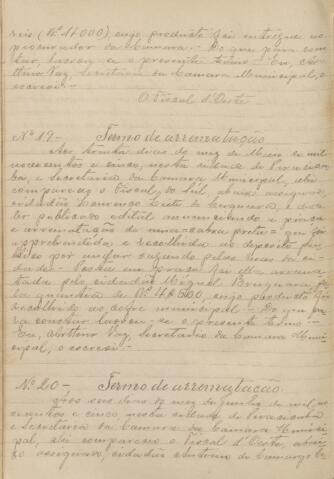 reis (Rs. 11$000), cujo producto foi entregue ao
procurador da Camara. - Do que para cons-
tar, lavrou-se o presente termo. - Eu, Ar-
thur Vaz, Secretario da Camara Municipal, o
escrevi. -
O Fiscal d'Oeste
Nº 19 - Termo de arrematação
Aos trinta dias do mez de Maio de mil
novecentos e cinco, nesta cidade de Piracica-
ba, e Secretaria da Camara Municipal, ahi
compareceu o Fiscal do Sul, abaixo assignado,
cidadão Lourenço Leite de Cerqueira, e disse
ter publicado edital annunciando a praça
e arrematação de uma cabra preta que foi
aprehendida e recolhida ao deposito
por vagando pelas ruas da ci-
dade. - Posta em praça, foi ella arrema-
tada pelo cidadão Miguel
la quantia de Rs. 4$500, cujo producto foi
recolhido ao cofre municipal. - Do que pa-
ra constar lavrou-se o presente termo. -
Eu, Arthur Vaz, Secretario da Camara Muni-
cipal, o escrevi. -
Nº 20 - Termo de arrematação
Aos seis dias do mez de Junho de mil no-
vecentos e cinco nesta cidade de Piracicaba
e Secretaria da Camara da Camara Munici-
pal, ahi compareceu o Fiscal d'Oeste, abai-
xo assignado, cidadão Antonio de Camargo